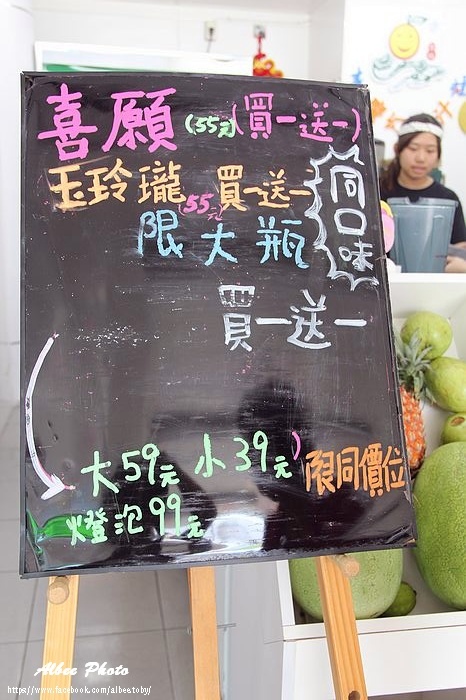 喜願(55元)(買一送一)
玉玲瓏55元買一送一
同口味
限大瓶
買一送一
大59元 小39元)
限同價位
燈泡99元
Albee Photo
https://www.facebook.com/albeetoby/